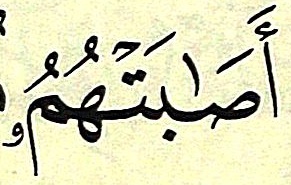 أَصَٰبَتْهُمُ